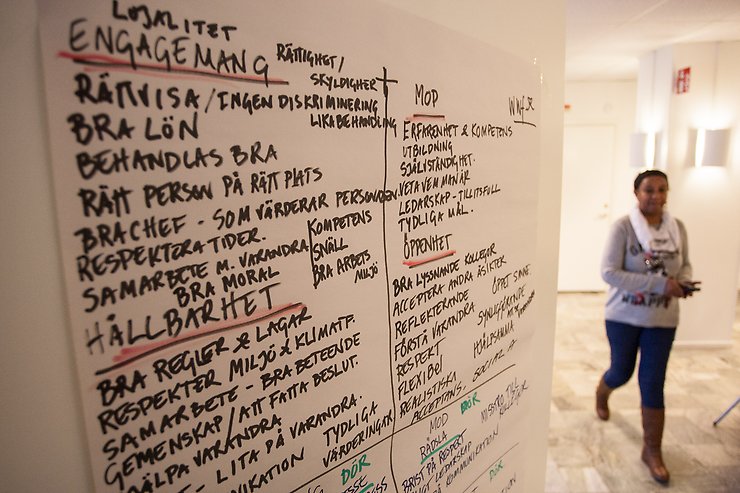 LOJALITET
ENGAGEMANG
RÄTTIGHET/
SKYLDIGHET
RÄTTVISA/INGEN DISKRIMINERING
LIKABEHANDLING
BRA LÖN
BEHANDLAS BRA
RÄTT PERSON PÅ RÄTT PLATS
BRA CHEF - SOM VÄRDERAR PERSONALEN
RESPEKTERA TIDER.
KOMPETENS
SNÄLL
BRA ARBETS
MILJÖ
SAMARBETE M. VARANDRA
BRA MORAL
HÅLLBARHET
BRA REGLER & LAGAR
RESPEKTER MILJÖ & KLIMATF.
SAMARBETE - BRA BETEENDE
GEMENSKAP/ATT FATTA BESLUT.
HJÄLPA VARANDRA
- LITA PÅ VARANDRA.
TYDLIGA
VÄRDERINGAR
DÖR
MOD
ERFARENHET & KOMPETENS
UTBILDNING
SJÄLVSTÄNDIGHET.
VETA VEM MAN ÄR
LEDARSKAP - TILLITSFULL
TYDLIGA MÅL.
ÖPPENHET
BRA LYSSNANDE KOLLEGOR
ACCEPTERA ANDRA ÅSIKTER
REFLEKTERANDE
ÖPPET SINNE.
FÖRSTÅ VARANDRA
SYNLIGGÖRANDE
RESPEKT
HJÄLPSAMMA
FLEXIBEL
REALISTISKA
ACCEPTANS, SOCIAL
DÖR
MOD
RÄDSLA
MISSTRO TILL
KOLLEGER
BRIST PÅ RESPEKT
LEDARSKAP
KOMMUNIKATION
DÖR